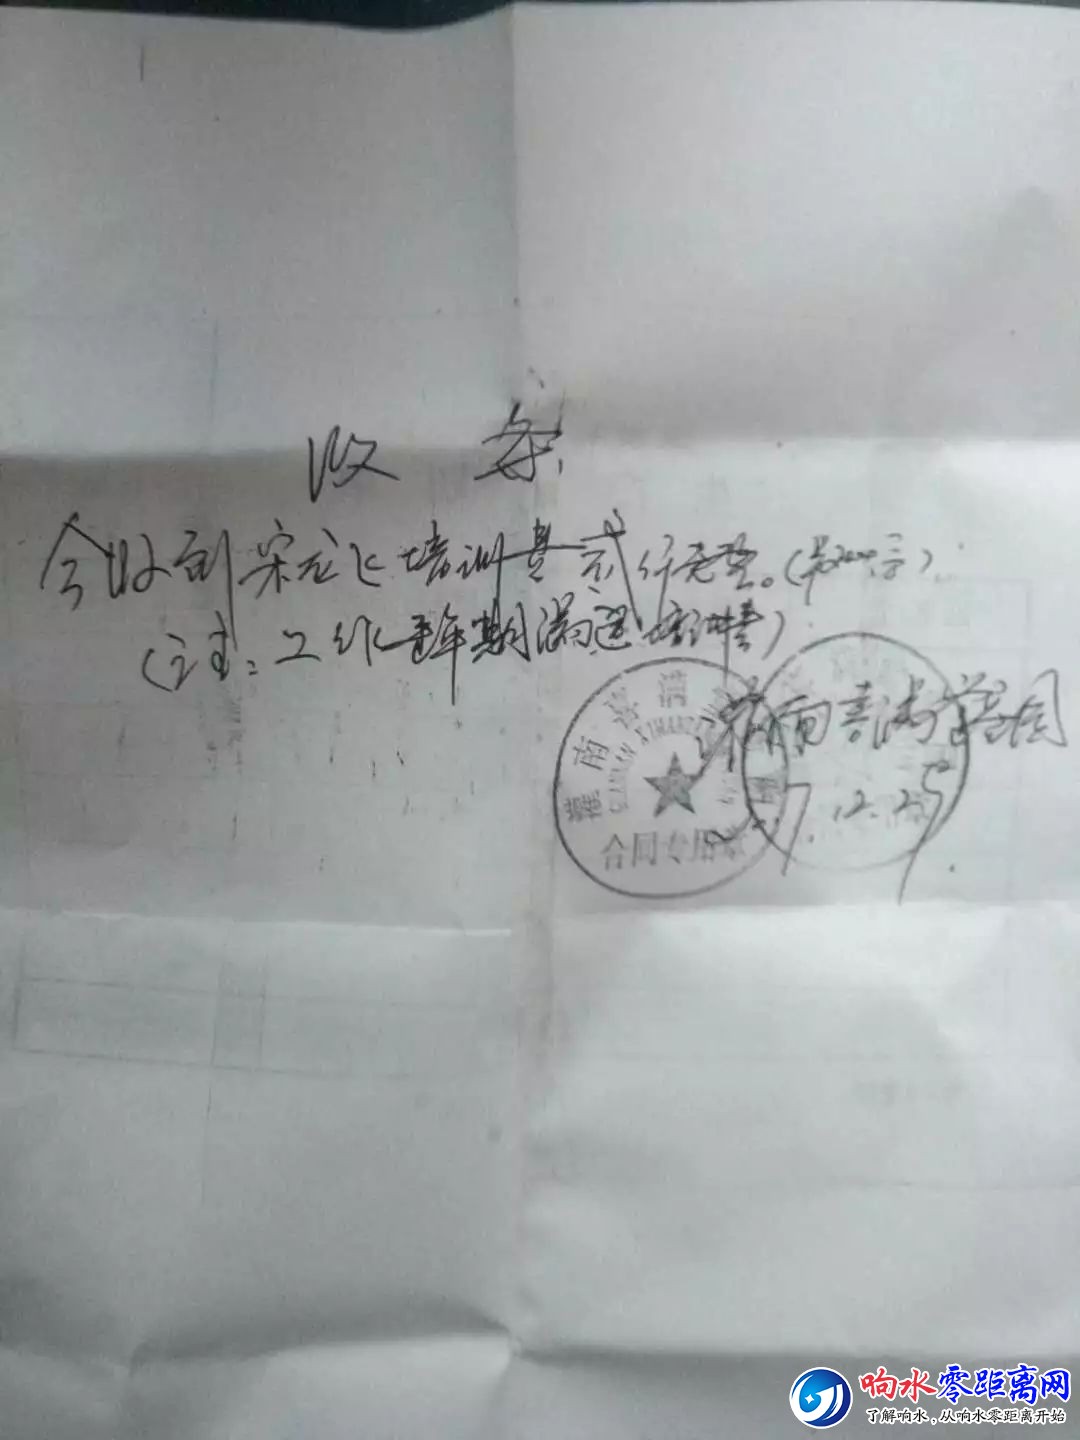 收条
今收到宋龙飞培训费贰仟元整。(¥2000元)
(注:工作壹年期满退培训费)
灌南喜满堂
7.12.25
灌南
GUANNAN
合同专用章
响水零距离网
了解响水,从响水零距离开始